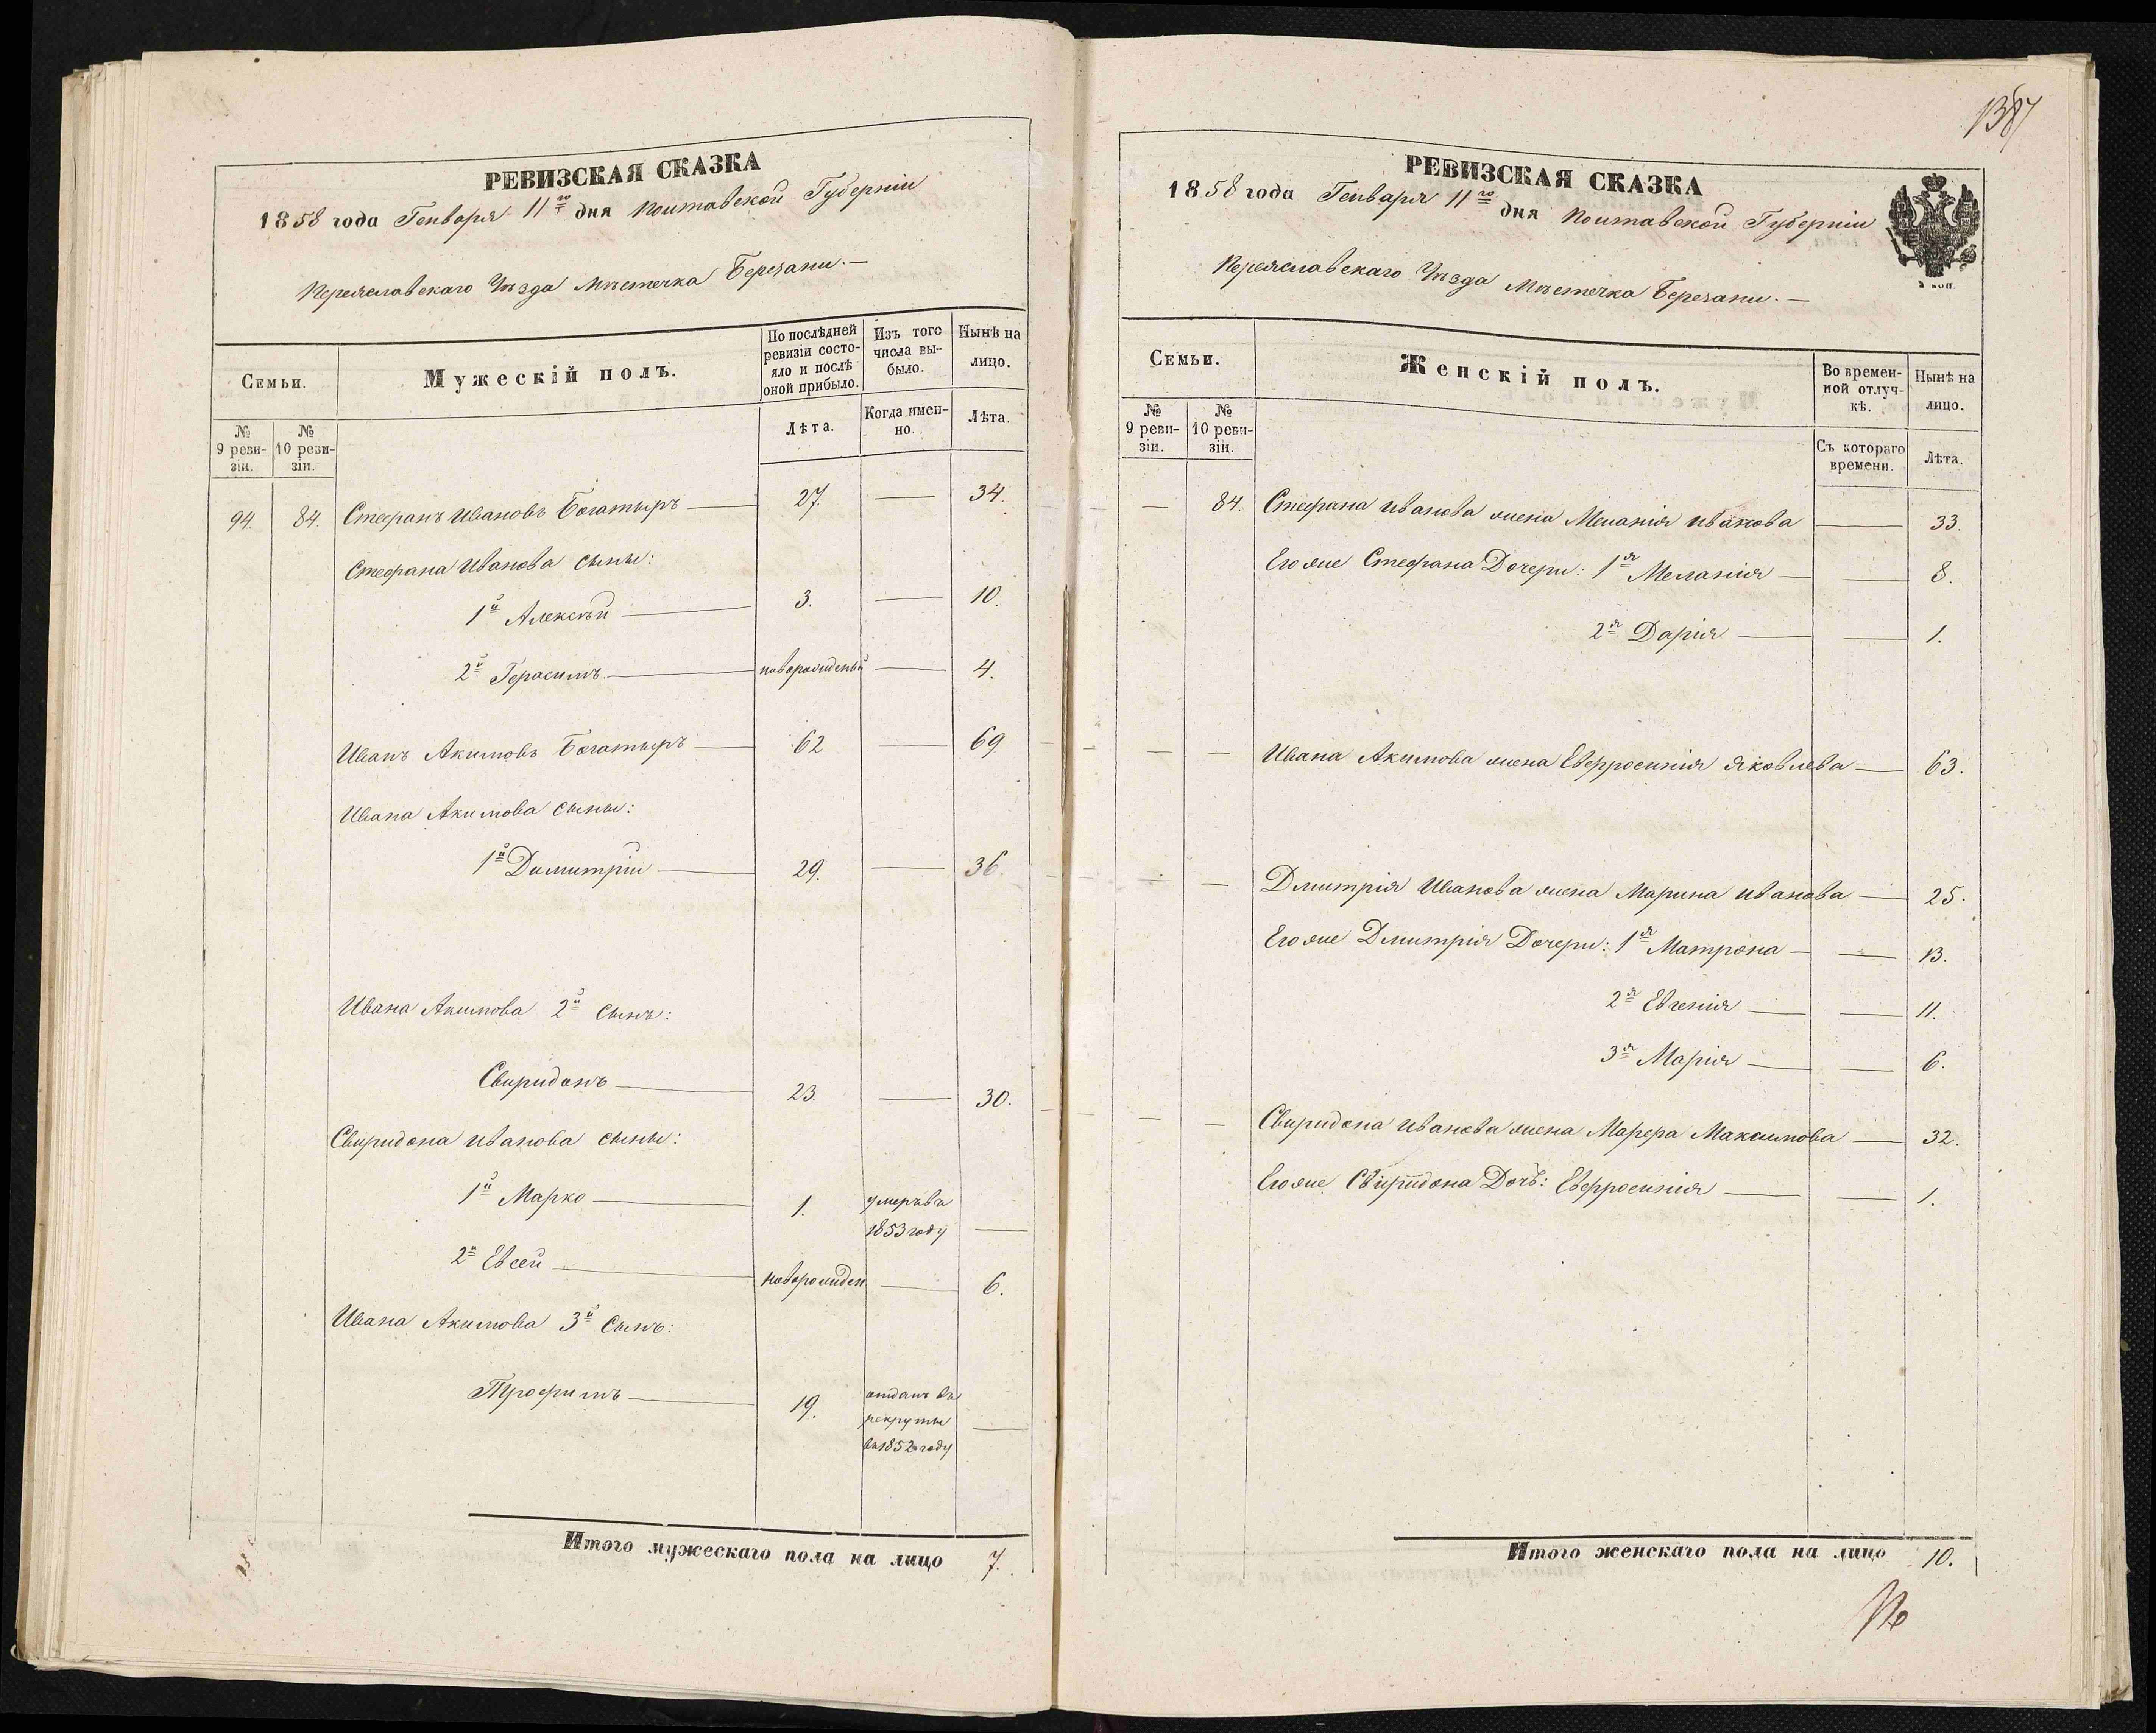 РЕВИЗСКАЯ СКАЗКА
1858 года Генваря 11го дня Полтавской Губерніи
Переяславскаго Уѣзда Мѣстечка Березани. —
Семьи.
Мужескій полъ.
По послѣдней ревизіи состояло и послѣ оной прибыло.
Изъ того числа выбыло.
Нынѣ на лицо.
№ 9 ревизіи.
№ 10 ревизіи.
Лѣта.
Когда именно.
Лѣта.
94. 84. Стефанъ Ивановъ Богатыръ — 27. — 34.
Стефана Иванова сыны:
1й Алексѣй — 3. — 10.
2й Герасимъ — новорожденый — 4.
Иванъ Акимовъ Богатыръ — 62 — 69
Ивана Акимова сыны:
1й Димитрій — 29. — 36.
Ивана Акимова 2й сынъ:
Свиридонъ — 23. — 30.
Свиридона Иванова сыны:
1й Марко — 1. умеръ въ 1853 году —
2й Евсей — новорожден — 6.
Ивана Акимова 3й сынъ:
Трофимъ — 19. отданъ въ рекруты въ 1852 году —
Итого мужескаго пола на лицо 7.
1387
РЕВИЗСКАЯ СКАЗКА
1858 года Генваря 11го дня Полтавской Губерніи
Переяславскаго Уѣзда Мѣстечка Березани. —
Семьи.
Женскій полъ.
Во временной отлучкѣ.
Нынѣ на лицо.
№ 9 ревизіи.
№ 10 ревизіи.
Съ котораго времени.
Лѣта.
— 84. Стефана Иванова жена Меланія Иванова — 33.
Его же Стефана Дочери: 1я Меланія — — 8.
2я Дарія — — 1.
— — Ивана Акимова жена Евфросинія Яковлева — 63.
— — Дмитрія Иванова жена Марина Иванова — 25.
Его же Дмитрія Дочери: 1я Матрона — — 13.
2я Евгенія — — 11.
3я Марія — — 6.
— — Свиридона Иванова жена Марфа Максимова — 32.
Его же Свиридона Дочь: Евфросинія — — 1.
Итого женскаго пола на лицо 10.